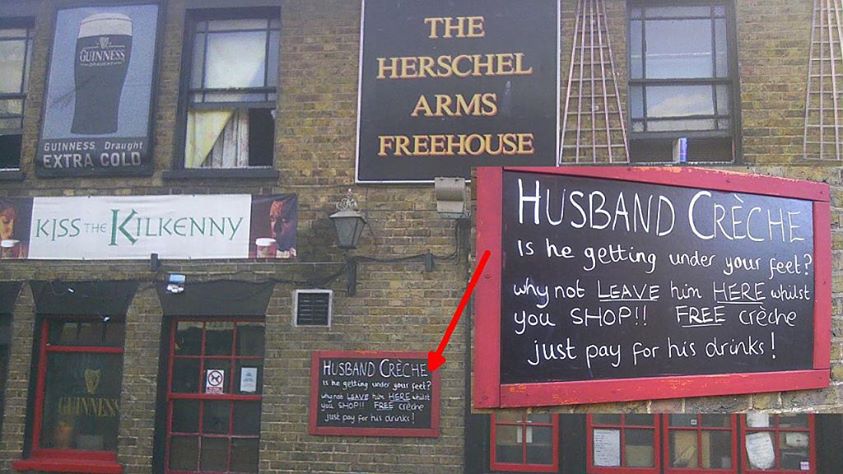 GUINNESS
DRAUGHT
GUINNESS Draught
EXTRA COLD
THE
HERSCHEL
ARMS
FREEHOUSE
KISS THE KILKENNY
HUSBAND CRÈCHE
is he getting under your feet?
why not LEAVE him HERE whilst
you SHOP!! FREE crèche
just pay for his drinks!
HUSBAND CRÈCHE
is he getting under your feet?
why not LEAVE him HERE whilst
you SHOP!! FREE crèche
just pay for his drinks!
GUINNESS